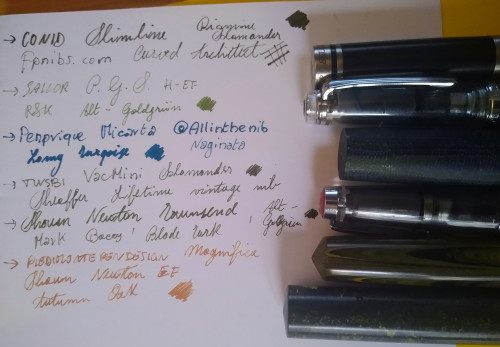 → CONID Slimline Diamine Salamander
Fpnibs.com Curved Architect
→ SAILOR P.G.S H-EF
R&K Alt-Goldgrün
→ Penprique Micarta @Allinthenib
Lamy Turquoise Naginata
→ TWSBI VacMini Salamander
Sheaffer Lifetime vintage nib
→ Shawn Newton Townsend Alt-Goldgrün
Mark Bacas' Blade
→ Shawn Newton EF Magnifica
Autumn Oak